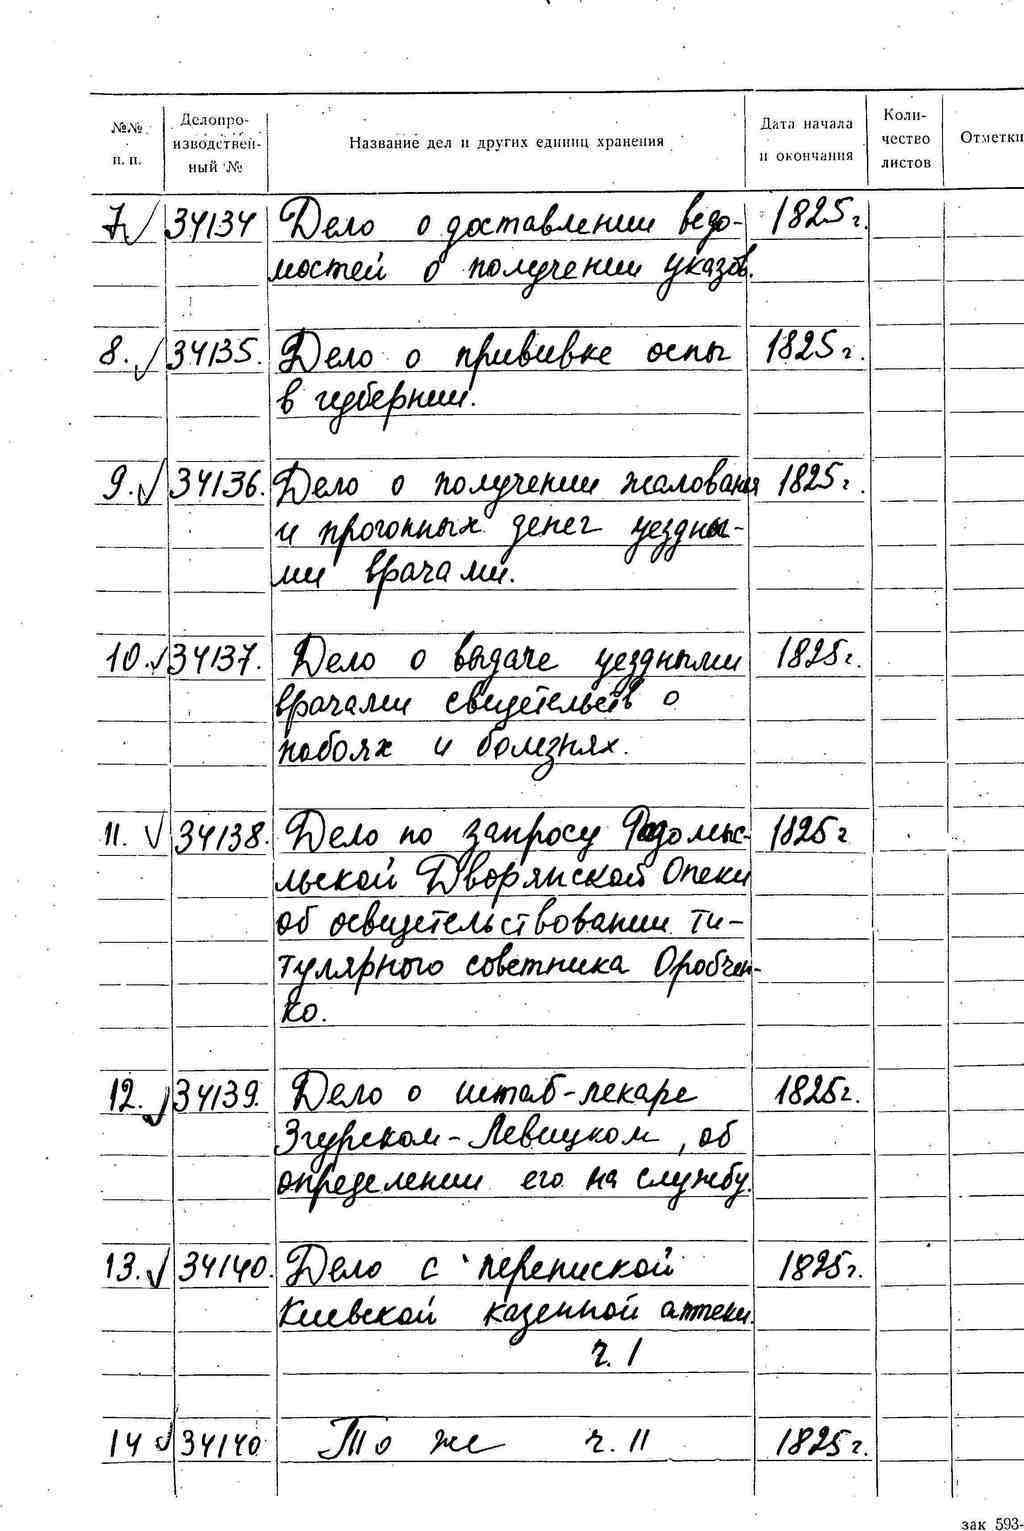 №№ п. п. Делопроизводствен- ный № Название дел и других единиц хранения Дата начала и окончания Коли- чество листов Отметки
7. 34134 Дело о доставлении ведо- 1825 г.
мостей о получении указов.
8. 34135. Дело о прививке оспы 1825 г.
в губернии.
9. 34136. Дело о получении жалования 1825 г.
и прогонных денег уездны-
ми врачами.
10. 34137. Дело о выдаче уездными 1825 г.
врачами свидетельств о
побоях и болезнях.
11. 34138. Дело по запросу Радомыс- 1825 г
льской Дворянской Опеки
об освидетельствовании ти-
тулярного советника Оробчен-
ко.
12. 34139. Дело о штаб-лекаре 1825 г.
Згурском-Левицком, об
определении его на службу.
13. 34140. Дело с перепиской 1825 г.
Киевской казенной аптеки.
ч. I
14 34140 То же ч. II 1825 г.
зак 593-